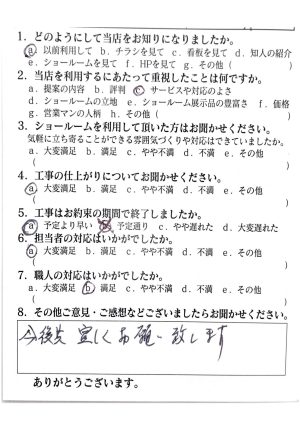 1．どのようにして当店をお知りになりましたか。
a．以前利用して b．チラシを見て c．看板を見て d．知人の紹介
e．ショールームを見て f．HPを見て g．その他（
2．当店を利用するにあたって重視したことは何ですか。
a．提案の内容 b．評判 c．サービスや対応のよさ
d．ショールームの立地 e．ショールーム展示品の豊富さ f．価格
g．営業マンの人柄 h．その他（
3．ショールームを利用して頂いた方はお聞かせください。
気軽に立ち寄ることができる雰囲気づくりや対応はできていましたか。
a．大変満足 b．満足 c．やや不満 d．不満 e．その他
（
4．工事の仕上がりについてお聞かせください。
a．大変満足 b．満足 c．やや不満 d．不満 e．その他
（
5．工事はお約束の期間で終了しましたか。
a．予定より早い b．予定通り c．やや遅れた d．大変遅れた
6．担当者の対応はいかがでしたか。
a．大変満足 b．満足 c．やや不満 d．不満 e．その他
（
7．職人の対応はいかがでしたか。
a．大変満足 b．満足 c．やや不満 d．不満 e．その他
（
8．その他ご意見・ご感想などございましたらお聞かせください。
今後共 宜しくお願い致します
ありがとうございます。